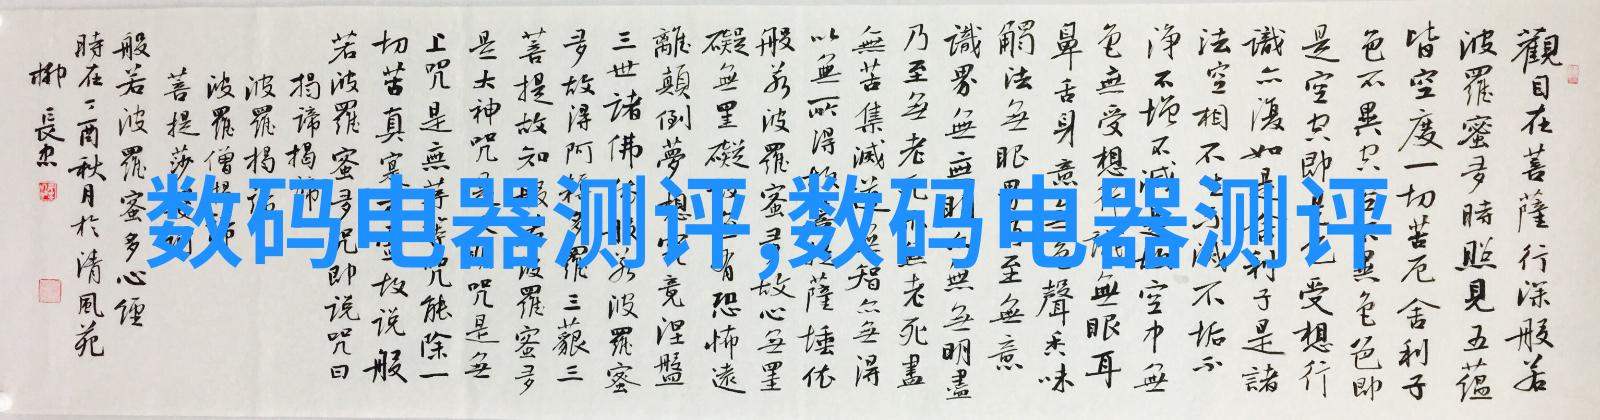 觀自在菩薩行深般若
波羅蜜多時照見五蘊
皆空度一切苦厄舍利子
色不異空空不異色色即
是空空即是色受想行
識亦復如是舍利子是諸
法空相不生不滅不垢不
淨不增不減是故空中無
色無受想行識無眼耳
鼻舌身意無色聲香味
觸法無眼界乃至無意
識界無無明亦無無明盡
乃至無老死亦無老死盡
無苦集滅道無智亦無得
以無所得故菩提薩埵依
般若波羅蜜多故心無罣
礙無罣礙故無有恐怖遠
離顛倒夢想究竟涅盤
三世諸佛依般若波羅蜜
多故得阿耨多羅三藐三
菩提故知般若波羅蜜多
是大神咒是大明咒是無
上咒是無等等咒能除一
切苦真實不虛故说般
若波羅蜜多咒即说咒曰
揭諦揭諦
波羅揭諦
波羅僧揭諦
菩提莎婆訶
般若波羅蜜多心經
時在丁酉秋月於清風苑
柳長忠
数码电器测评,数码电器测评